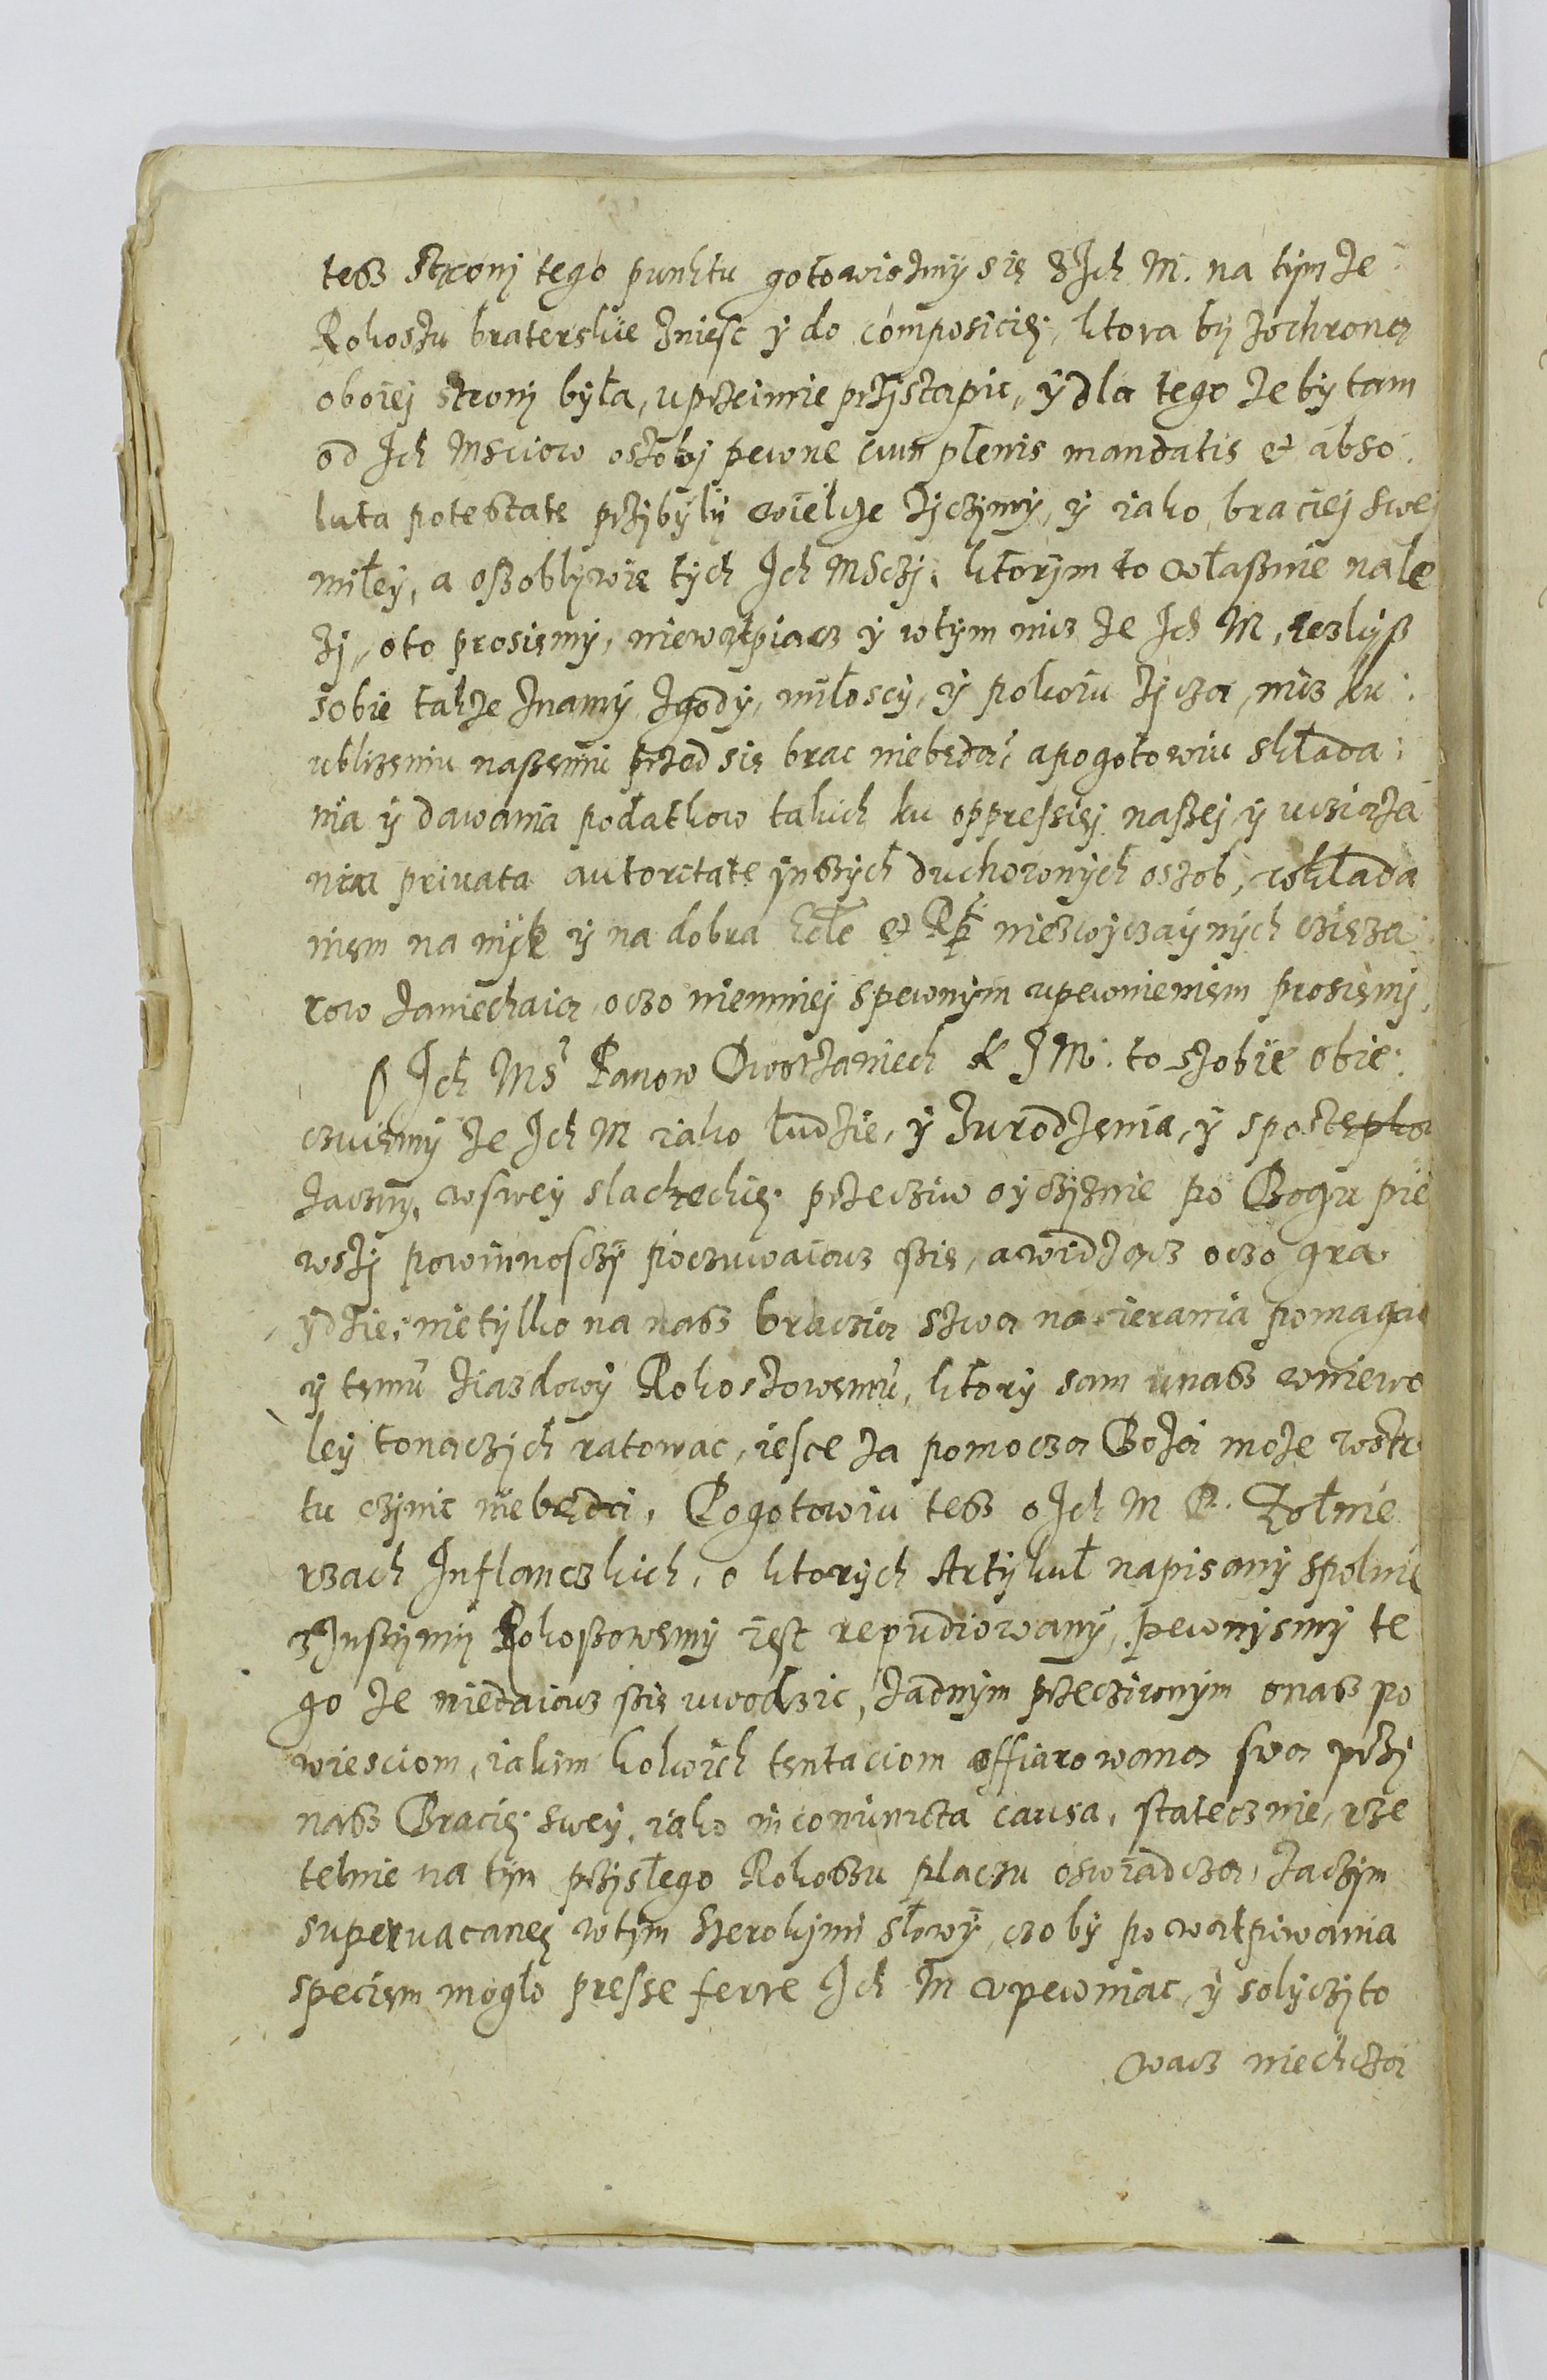 tesz stronj tego punktu gotowismy się z Ich M. na tymze
Rokoszu braterskie zniesc y do composicię, ktora by zochroną
oboiej stronj była, uprzeimie przjstapic, y dla tego zeby tam
od Ich Msciow oszobj pewne cum plenis mandatis et abso
luta potestate przjbyly wielcze zjczymy, y iako braciej swej
miłey, a oszobljwie tych Ich Msczj, ktorjm to własznie nale
zj, oto prosięmy, niewątpiacz y wtym nicz ze Ich M,
sobie takze znamy zgody, miłoscy, y pokoiu zjczą, nicz ku
ublizęniu naszęmu przed się brac niebędą, apogotowiu składa
nia y dawania podatkow takich ku oppressięj naszej y uciąza
nia priuata autoritate ynszych duchownych oszob, wkłada
nięm na nich y na dobra et Rp niezwyczaynych cięza
row zaniechaią, oczo niemniej spewnym upewnienięm prosięmj,
O Ich Ms Panow Dworzaniech K J M. to szobie obie
czuięmy ze Ich M iako ludzie, y zurodzęnia, y spostępkow
zaczny, wswey slachechię przeciw oyczyznie po Bogu pie
wszj powinnosczy poczuwaiącz się, awidzącz oczo gra
ydzie, nietylko na nasz braczią swą nacierania pomagac
y tęmu ziazdowy Rokoszowęmu, ktory sam unasz wniewo
ley tonączych ratowac, iesce za pomoczą Bozą moze wstrę
tu czjnic niebędą. Pogotowiu tesz o Ich M P. Zołnie
rzach Inflanczkich, o ktorych Artykuł napisany spolnie
zInszymy Rokoszowęmy iest repudiowany, pewnysmy te
go ze niedaiącz się uwodzic, zadnym przeciwnym onasz po
wiesciom, iakim kolwich tęntaciom offiarowaną swą przj
nasz Bracię swey, iako in coniuncta causa, statecznie, rze
telnie na tym przyszlego Rokoszu placzu oswiadczą, zaczym
superuacaneę wtym szerokjmi słowy, czo by powątpiwania
specięm mogło presse ferre Ich M upewniac, y solyczyto
wacz niechczą